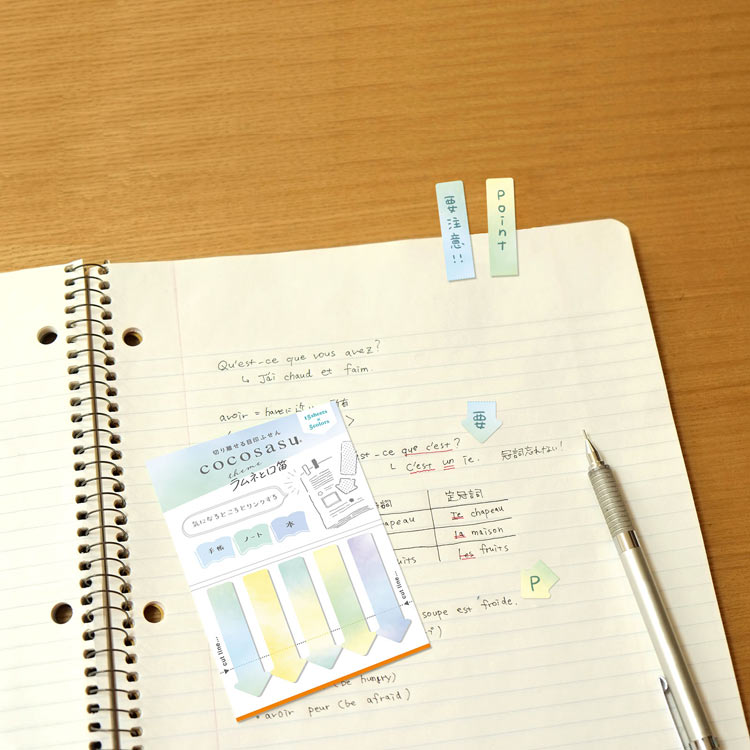 要注意!!
Point
Qu'est-ce que vous avez?
↳ J'ai chaud et faim.
avoir = have
要
est-ce que c'est?
↳ C'est un Ie.
冠詞忘れない!
詞 定冠詞
apeau Ie chapeau
la maison
uits Les fruits
P
soupe est froide.
(be hungry)
• avoir peur (be afraid)
15sheets × 5colors
切り離せる目印ふせん
cocosasu
theme
ラムネと口笛
気になるところとリンクする
手帳 ノート 本
cut line...
cut line...